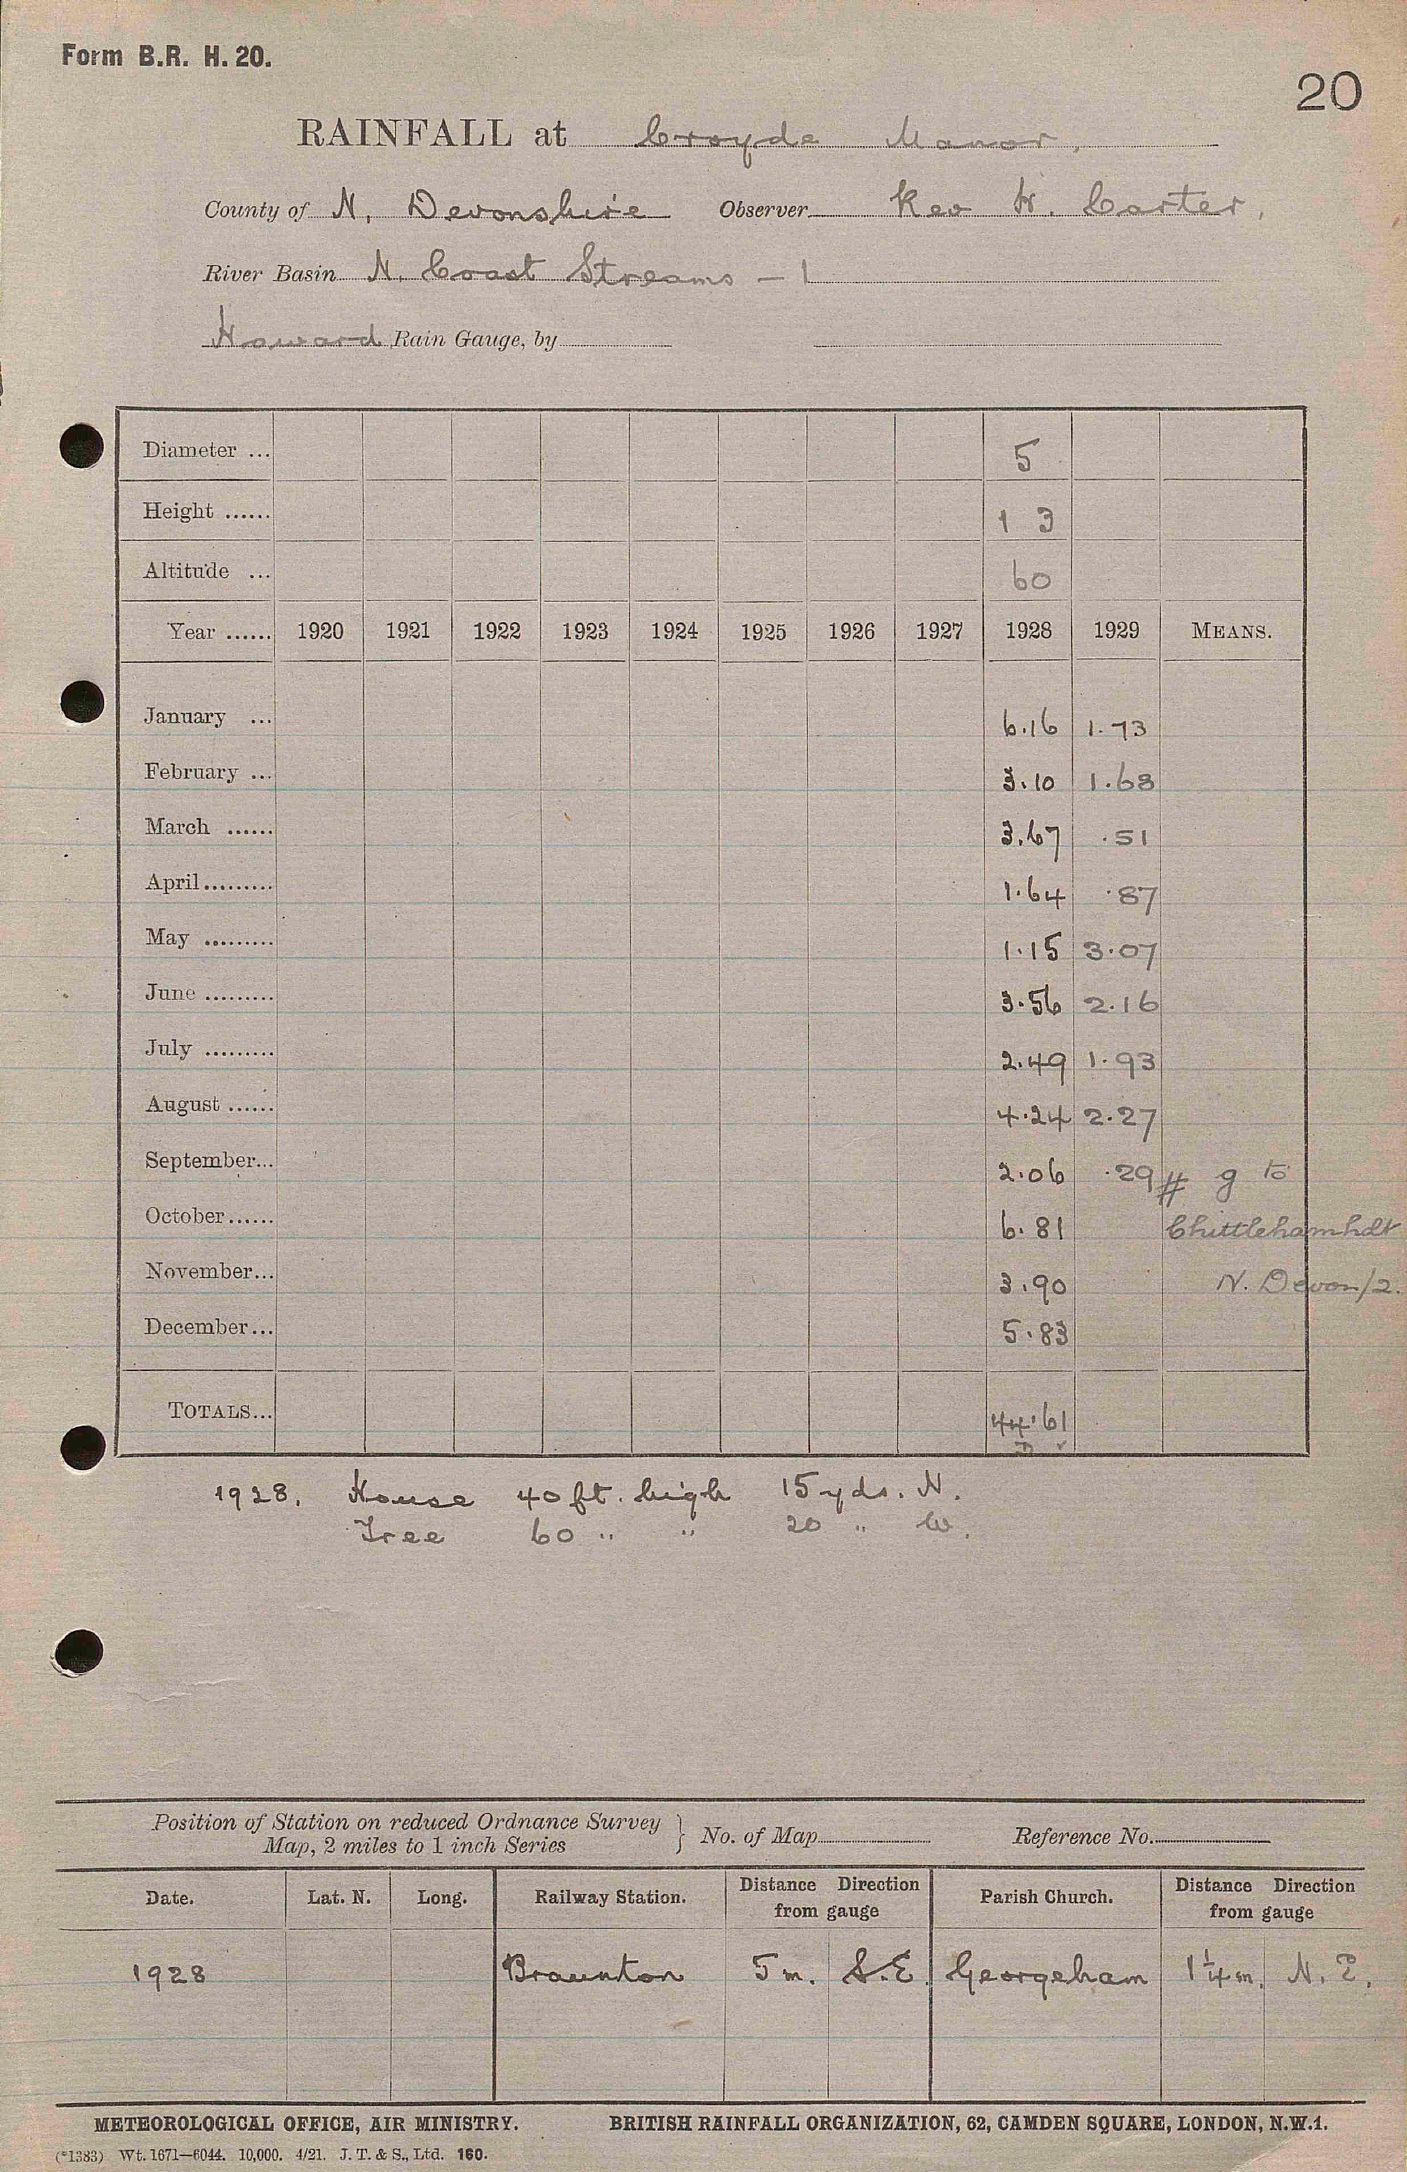 Form B.R. H. 20.
20
RAINFALL at Croyde Manor,
County of N. Devonshire Observer Rev H. Carter,
River Basin N. Coast Streams - 1
Howard Rain Gauge, by
Diameter ... 5
Height ...... 1 3
Altitude ... 60
Year ...... 1920 1921 1922 1923 1924 1925 1926 1927 1928 1929 MEANS.
January ... 6.16 1.73
February ... 3.10 1.68
March ...... 3.67 .51
April ......... 1.64 .87
May ......... 1.15 3.07
June ......... 3.56 2.16
July ......... 2.49 1.93
August ...... 4.24 2.27
September... 2.06 .29 # g to
October...... 6.81 Chittlehamhdt
November... 3.90 N. Devon/2.
December... 5.83
TOTALS... 44.61
1928. House 40 ft. high 15 yds. N.
Tree 60 " " 20 " W.
Position of Station on reduced Ordnance Survey
Map, 2 miles to 1 inch Series } No. of Map Reference No.
Date. Lat. N. Long. Railway Station. Distance Direction from gauge Parish Church. Distance Direction from gauge
1928 Braunton 5 m. S.E. Georgeham 1 1/4 m. N. E.
METEOROLOGICAL OFFICE, AIR MINISTRY. BRITISH RAINFALL ORGANIZATION, 62, CAMDEN SQUARE, LONDON, N.W.1.
(*1383) Wt. 1671—6044. 10,000. 4/21. J. T. & S., Ltd. 160.